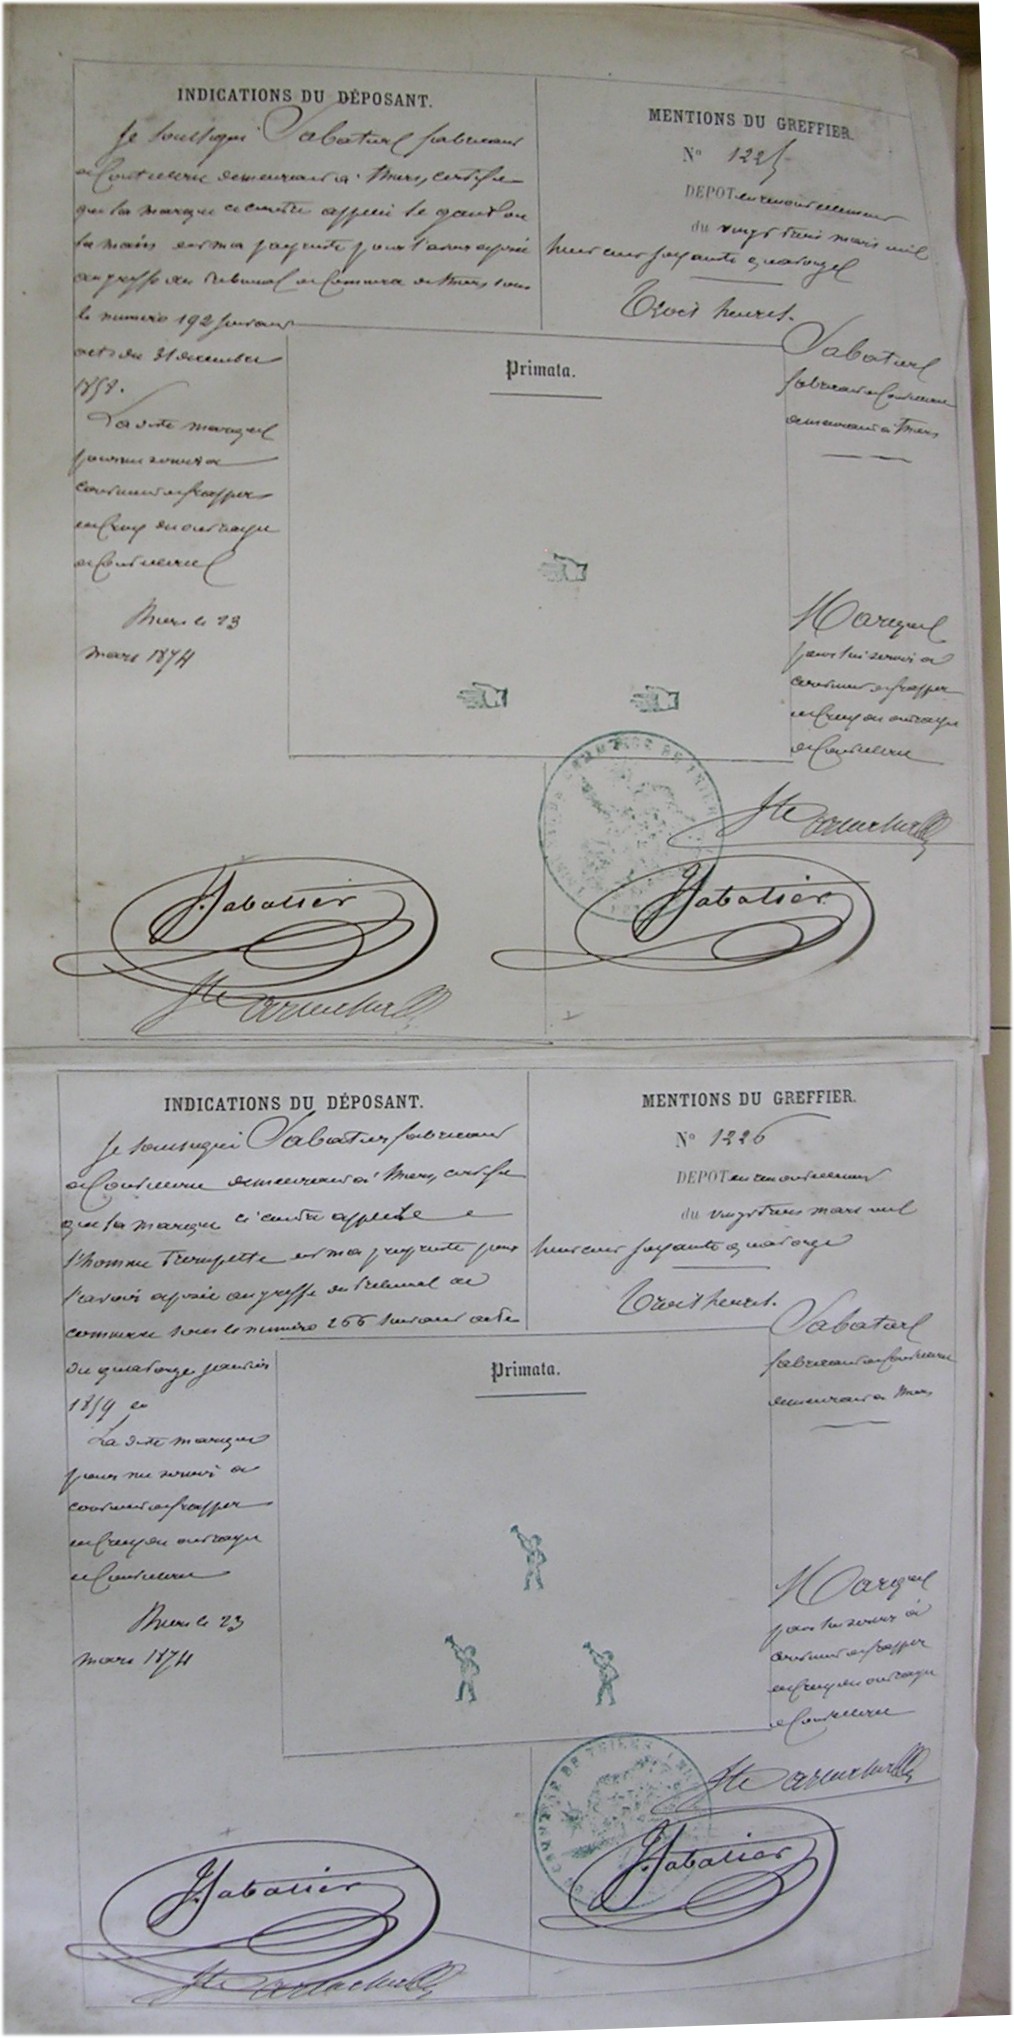 INDICATIONS DU DÉPOSANT.
Je soussigné Sabatier fabricant
de Coutellerie demeurant à Thiers, certifie
que la marque ci contre appelée le gant ou
la main est ma propriété pour l'avoir déposée
au greffe du Tribunal de Commerce de Thiers sous
le numéro 192 suivant
acte du 31 décembre
185
La dite marque
pour me servir à
continuer de frapper
en creux des ouvrages
de Coutellerie
Thiers le 23
mars 1874
J. Sabatier
MENTIONS DU GREFFIER.
N° 1225
DEPOT en renouvellement
du vingt trois mars mil
huit cent soixante quatorze
Trois heures.
Sabatier
fabricant de Coutellerie
demeurant à Thiers
Primata.
Marque
pour lui servir à
continuer de frapper
en creux des ouvrages
de Coutellerie
J. Sabatier
INDICATIONS DU DÉPOSANT.
Je soussigné Sabatier fabricant
de Coutellerie demeurant à Thiers, certifie
que la marque ci contre appelée
l'homme Trompette est ma propriété pour
l'avoir déposée au greffe du Tribunal de
commerce sous le numéro 266 suivant acte
du quatorze janvier
1859
La dite marque
pour me servir à
continuer de frapper
en creux des ouvrages
de Coutellerie
Thiers le 23
mars 1874
J. Sabatier
MENTIONS DU GREFFIER.
N° 1226
DEPOT en renouvellement
du vingt trois mars mil
huit cent soixante quatorze
Trois heures.
Sabatier
fabricant de Coutellerie
demeurant à Thiers
Primata.
Marque
pour lui servir à
continuer de frapper
en creux des ouvrages
de Coutellerie
COMMERCE DE THIERS
J. Sabatier